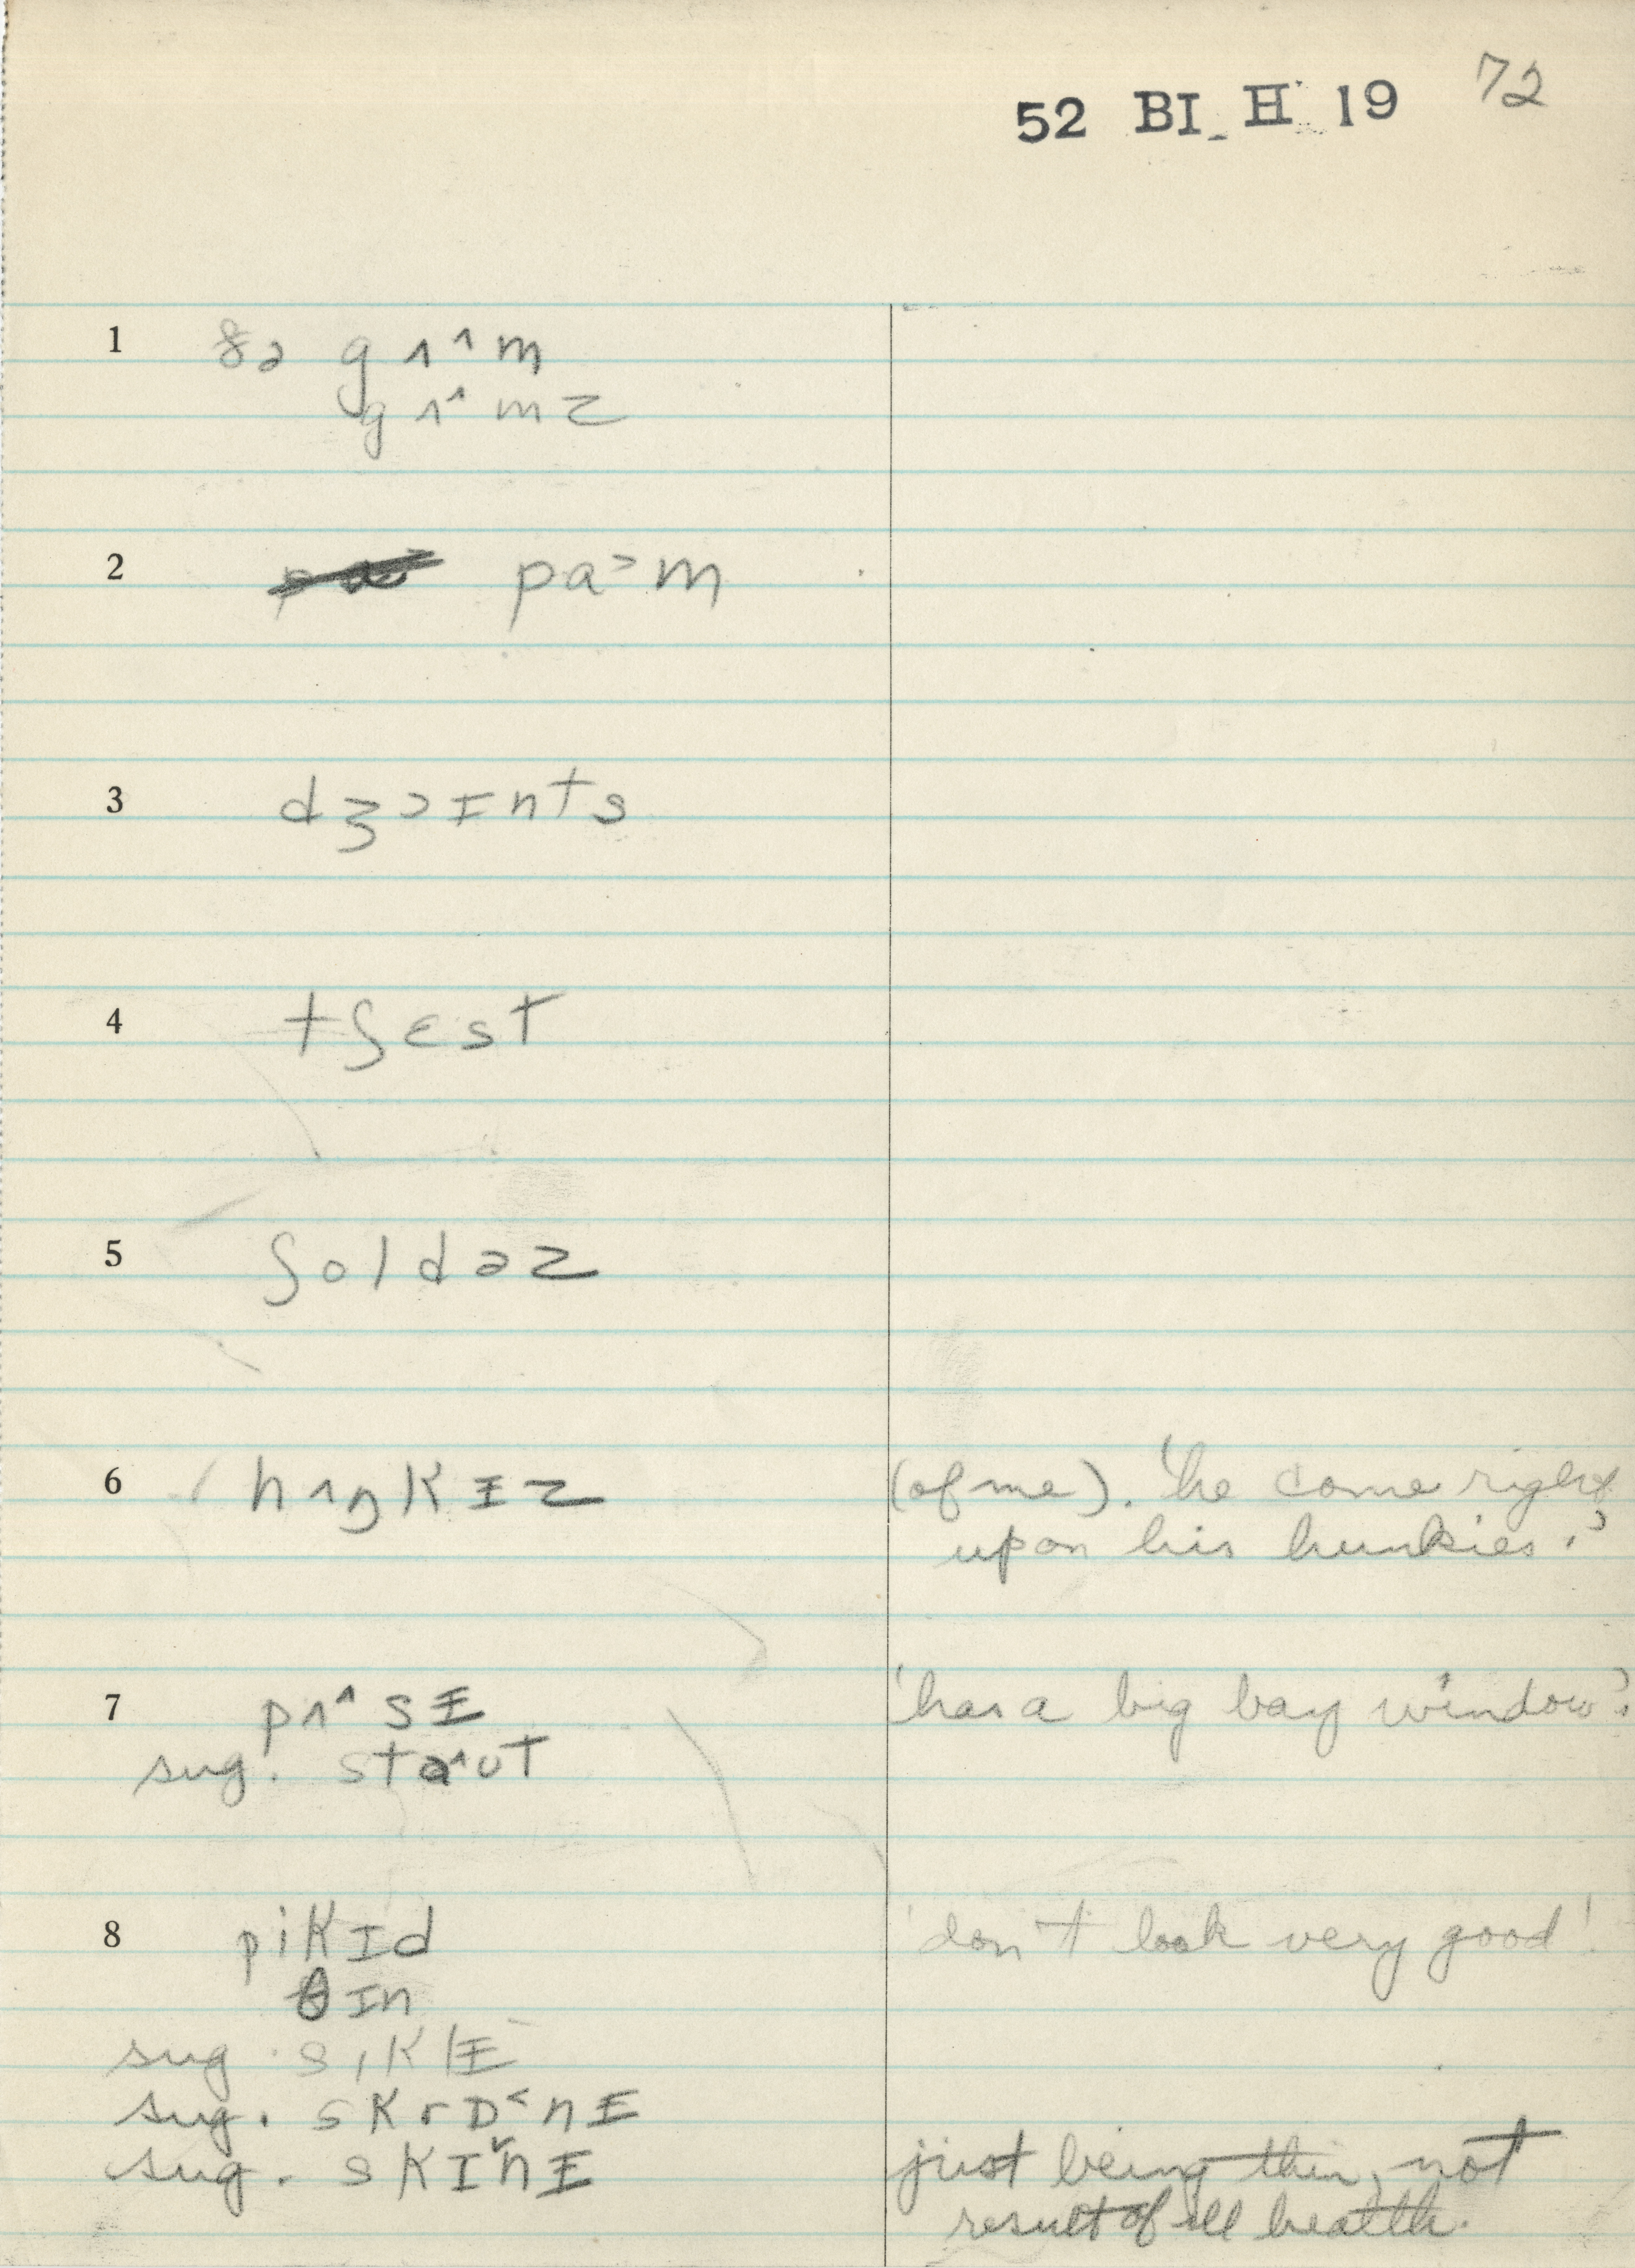 52 BI H 19 72
1 ðə gʌ^m
gʌ^mz
2 pa˃m
3 dʒɔɪnts
4 tʃɛst
5 ʃoldəz
6 hʌŋkɨz (of me). 'he come right
upon his hunkies.'
7 pʌ^sɨ 'has a big bay window'.
sug. sta^ʊt
8 pikɪd 'don't look very good'.
θɪn
sug. sɪklɨ
sug. skrɒ˂nɨ
sug. skɪ˅nɨ just being thin, not
result of ill health.